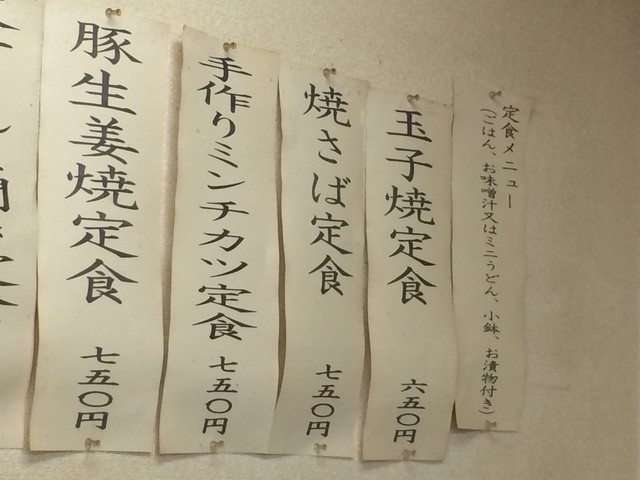 定食メニュー
(ごはん、お味噌汁又はミニうどん、小鉢、お漬物付き)
玉子焼定食
六五〇円
焼さば定食
七五〇円
手作りミンチカツ定食
七五〇円
豚生姜焼定食
七五〇円